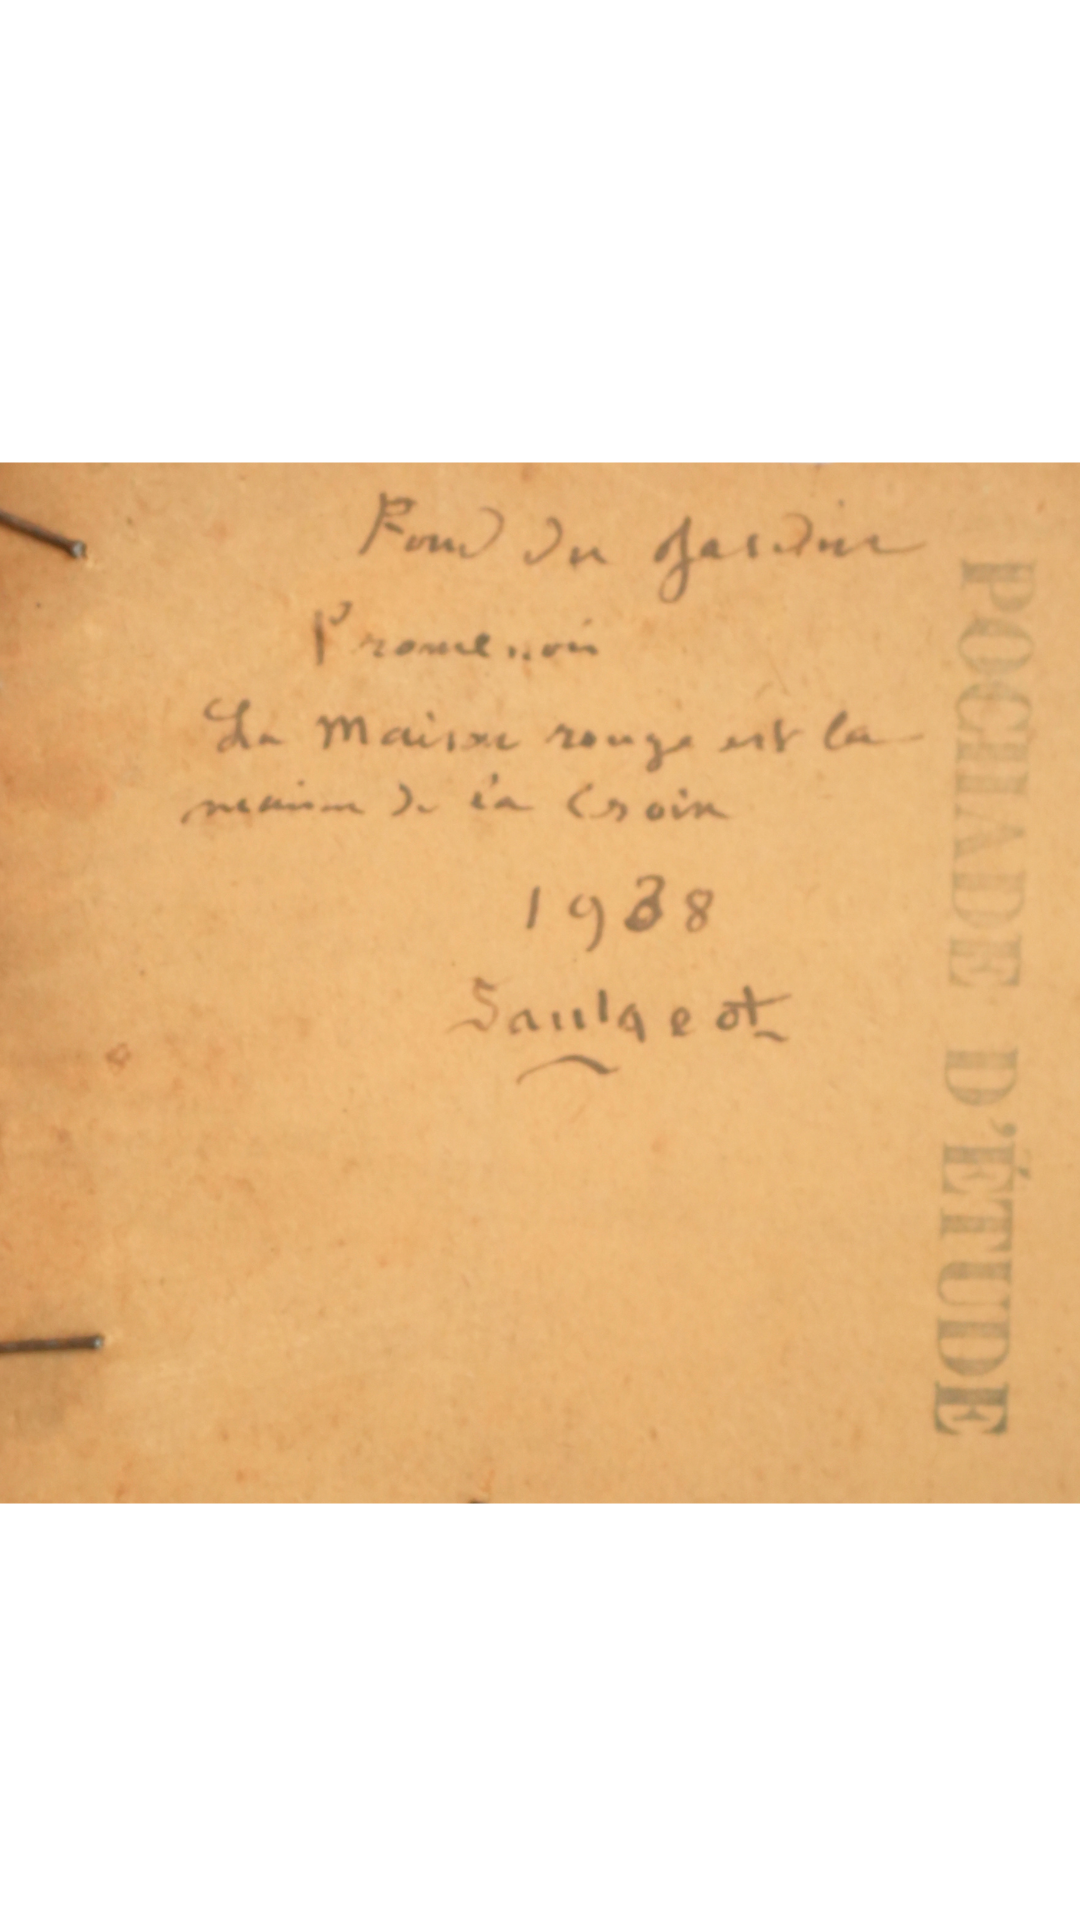 Fond du Jardin
Promenoir
La Maison rouge est la
maison de la Croix
1938
Saulgeot
POCHADE D'ÉTUDE